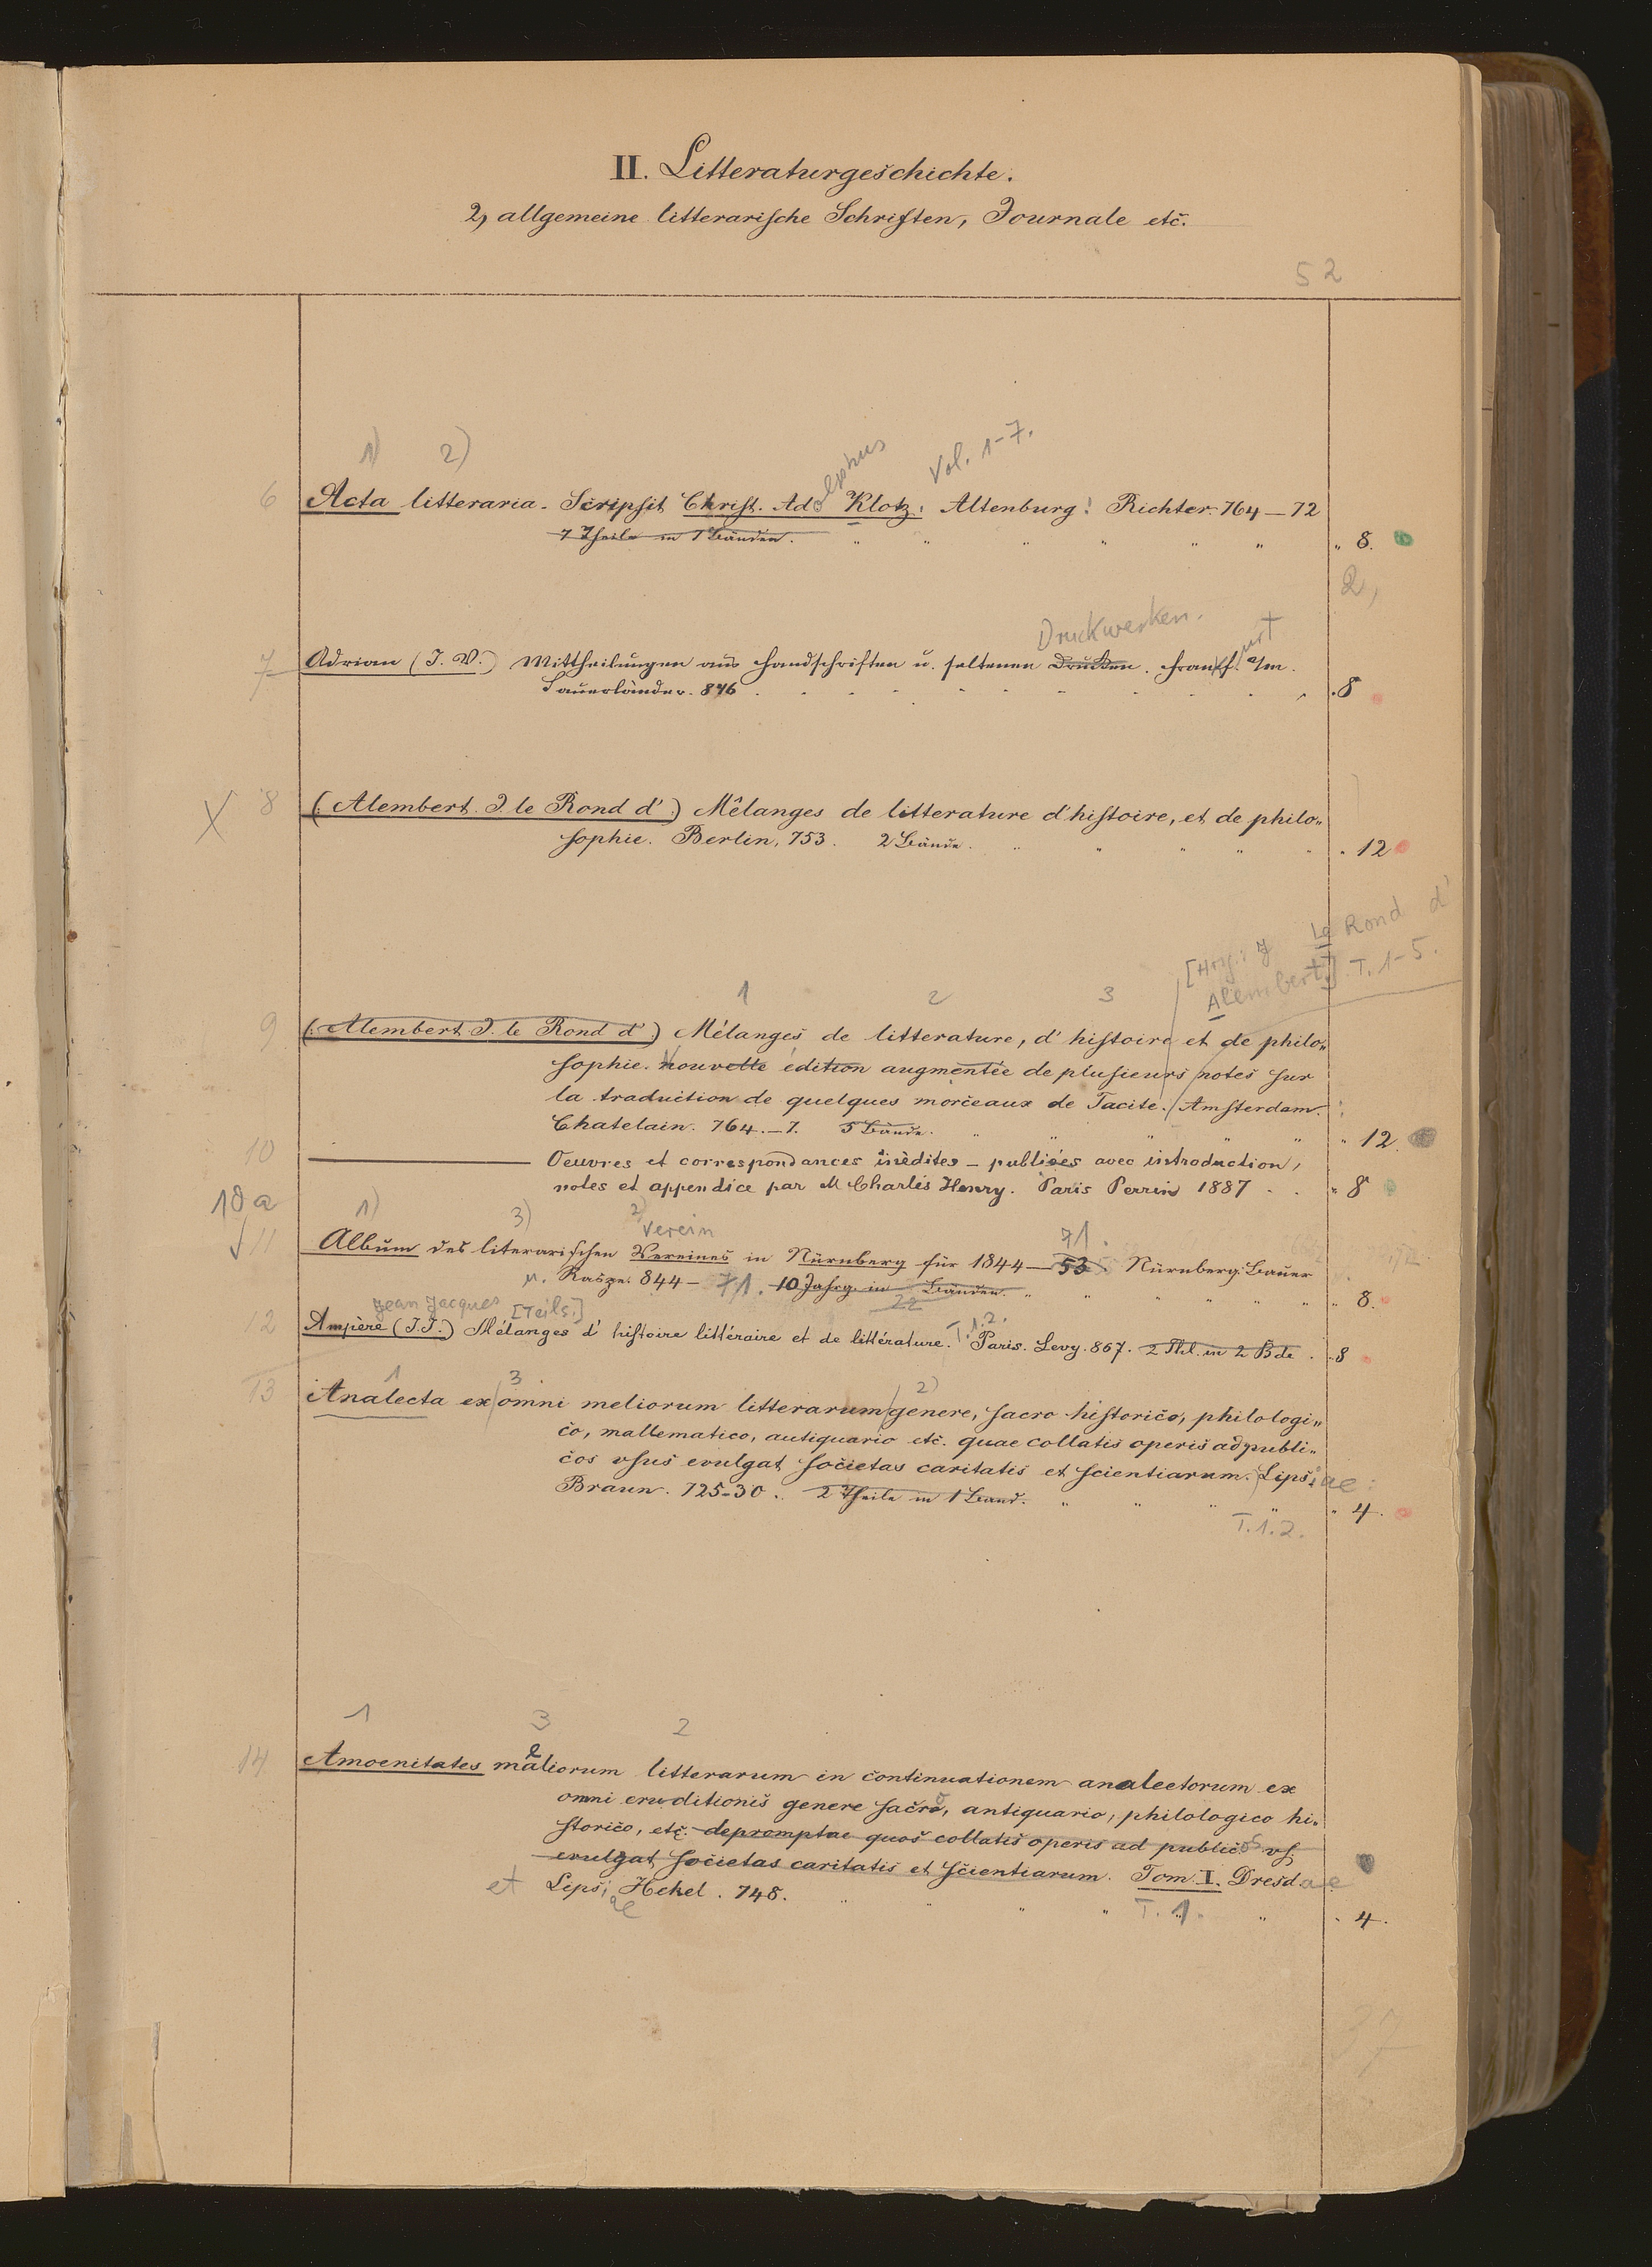 II. Litteraturgeschichte.
2, allgemeine litterarische Schriften, Journale etc.
52
1) 2) olphus Vol. 1-7.
6 Acta litteraria. Scripsit Christ. Ad. Klotz. Altenburg: Richter. 764–72
7 Theile in 7 Bänden. " 8.
2,
Druckwerken. urt
7 Adrian (J. V.) Mittheilungen aus Handschriften u. seltenen Drucken. Frankf. a/m.
Sauerländer. 846 . 8
X 8 (Alembert. J. le Rond d'.) Mêlanges de litterature d'histoire, et de philo„
sophie. Berlin, 753. 2 Bände. " 12
[Hrg.: J Le Rond d'
Alembert] T. 1-5.
1 2 3
9 (Alembert J. le Rond d'.) Mélanges de litterature, d'histoire et de philo„
sophie. Nouvelle édition augmentée de plusieurs notes sur
la traduction de quelques morceaux de Tacite. Amsterdam.:
Chatelain. 764.–7. 5 Bände. " 12.
10 ——— Oeuvres et correspondances inédites – publiées avec introduction,
notes et appendice par M Charles Henry. Paris Perrin 1887 . . " 8
10a 1) 3) 2) Verein 71.
√ 11 Album des literarischen Vereines in Nürnberg für 1844–53. Nürnberg: Bauer
u. Raspe. 844– 71. 10 Jahrg. in Bänden. " 8.
22
Jean Jacques [Teils.] T. 1.2.
12 Ampère (J.J.) Mélanges d'histoire littéraire et de littérature. Paris. Levy. 867. 2 Thl. in 2 Bde. . 8
1 3 2)
13 Analecta ex omni meliorum litterarum genere, sacro historico, philologi„
co, mathematico, antiquario etc. quae collatis operis ad publi„
cos usus evulgat societas caritatis et scientiarum. Lips:iae:
Braun. 725-30. 2 Theile in 1 Band. " 4.
T. 1. 2.
1 3 2
e
14 Amoenitates maliorum litterarum in continuationem analectorum ex
omni eruditionis genere sacro, antiquario, philologico hi„
storico, etc. depromptae quos collatis operis ad publicos us
evulgat societas caritatis et scientiarum. Tom I. Dresd.ae
et Lips;iae Hekel. 748. T. 1. " 4.